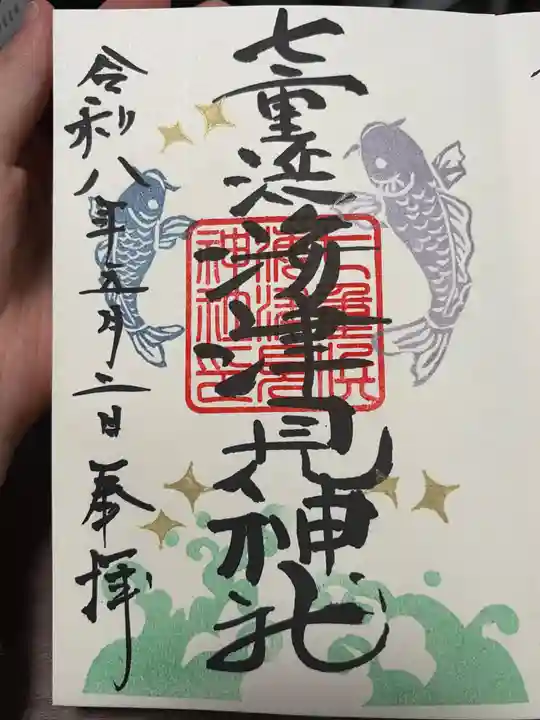 七重浜海津見神社
七重浜
海津見
神社印
令和八年五月二日 奉拝